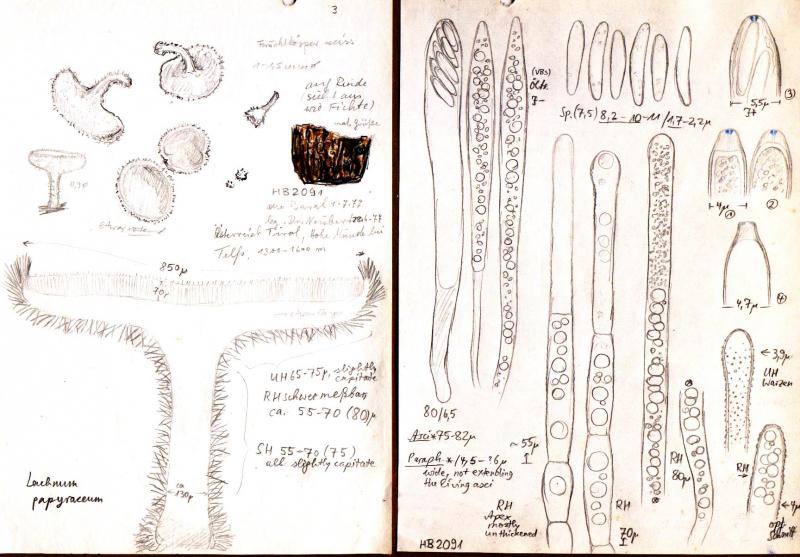 3
Fruchtkörper weiss
auf Rinde
(sieht aus
wie Fichte)
nat. Größe
0,9μ
HB2091
Österreich Tirol, Hohe Munde bei
Telfs, 1300-1600 m
850μ
70μ
UH 65-75μ, slightly
capitate
RH schwer meßbar
ca. 55-70 (80)μ
SH 55-70 (75)
all slightly capitate
ca
130μ
Lachnum
papyraceum
(VBs)
Öltr.
J-
Sp. (7,5) 8,2-10-11/1,7-2,2μ
5,5μ
J+
③
4μ
①
②
4,7μ
④
80/6,5
Asci *75-82μ
Paraph. */4,5-?6μ
wide, not extending
the living asci
~55μ
RH
Apex
mostly
unthickened
RH
70μ
RH
80μ
3,9μ
UH
Warzen
RH
4μ
opt.
Schnitt
HB2091